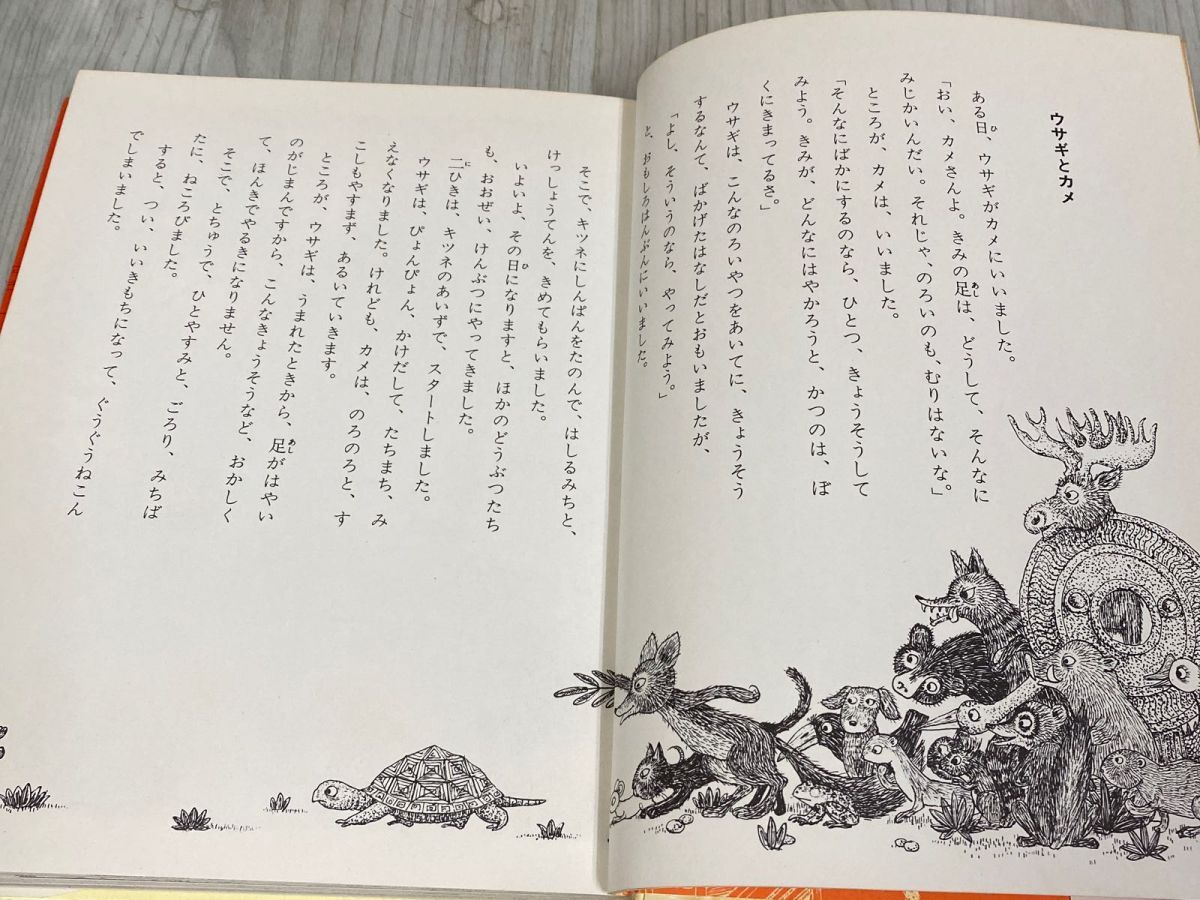 ウサギとカメ
ある日、ウサギがカメにいいました。
「おい、カメさんよ。きみの足は、どうして、そんなに
みじかいんだい。それじゃ、のろいのも、むりはないな。」
ところが、カメは、いいました。
「そんなにばかにするのなら、ひとつ、きょうそうして
みよう。きみが、どんなにはやかろうと、かつのは、ぼ
くにきまってるさ。」
ウサギは、こんなのろいやつをあいてに、きょうそう
するなんて、ばかげたはなしだとおもいましたが、
「よし、そういうのなら、やってみよう。」
と、おもしろはんぶんにいいました。
そこで、キツネにしんぱんをたのんで、はしるみちと、
けっしょうてんを、きめてもらいました。
いよいよ、その日になりますと、ほかのどうぶつたち
も、おおぜい、けんぶつにやってきました。
二ひきは、キツネのあいずで、スタートしました。
ウサギは、ぴょんぴょん、かけだして、たちまち、み
えなくなりました。けれども、カメは、のろのろと、す
こしもやすまず、あるいていきます。
ところが、ウサギは、うまれたときから、足がはやい
のがじまんですから、こんなきょうそうなど、おかしく
て、ほんきでやるきになりません。
そこで、とちゅうで、ひとやすみと、ごろり、みちば
たに、ねころびました。
すると、つい、いいきもちになって、ぐうぐうねこん
でしまいました。